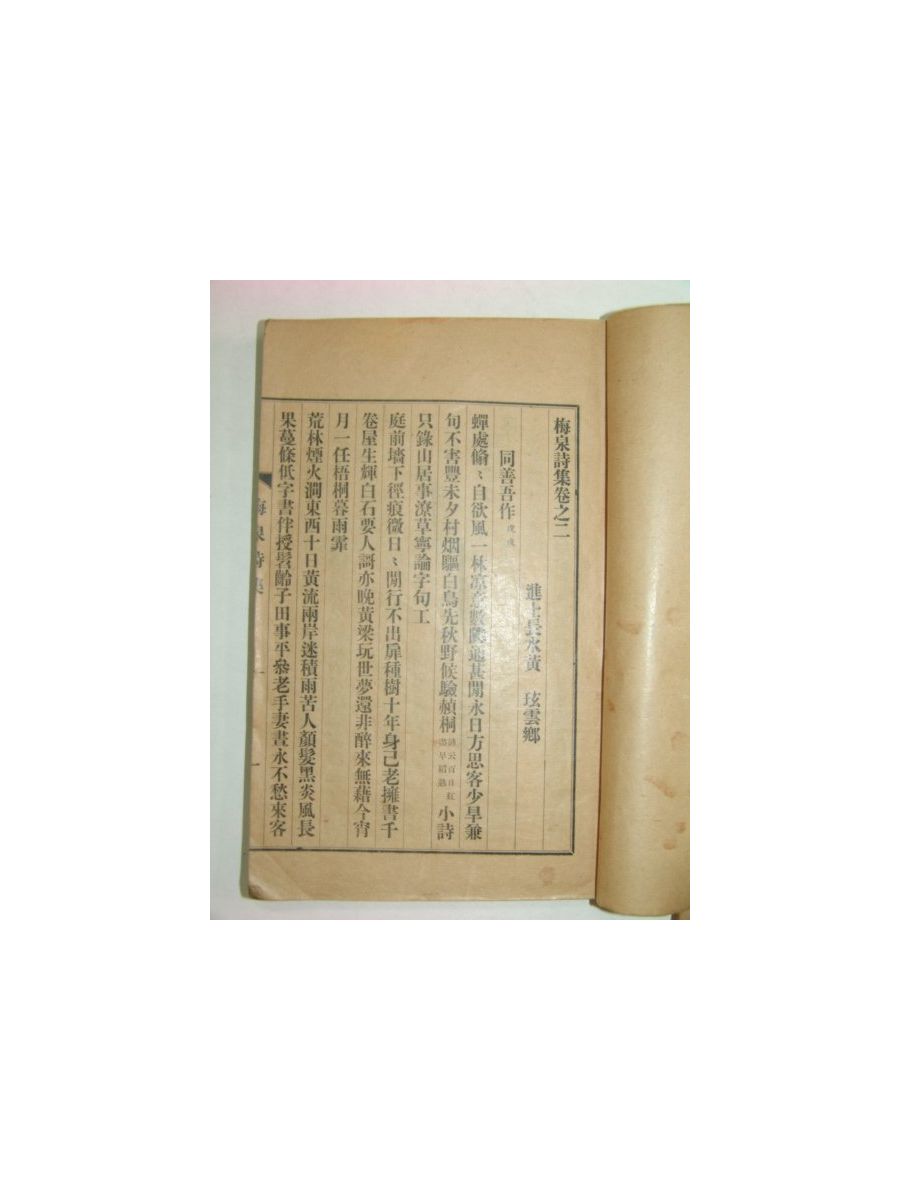 梅泉詩集卷之二
進士長水黃　玹雲卿
同善吾作 戊戌
蟬處翛〻自欲風一林凉意數陂通甚閒永日方思客少旱兼
旬不害豐未夕村烟驅白鳥先秋野候驗赬桐 諺云百日紅盡早稻熟 小詩
只錄山居事潦草寧論字句工
庭前墻下徑痕微日〻閒行不出扉種樹十年身已老擁書千
卷屋生輝白石要人謌亦晩黃粱玩世夢還非醉來無藉今宵
月一任梧桐暮雨霏
荒林煙火澗東西十日黃流兩岸迷積雨苦人顏髮黑炎風長
果蔓條低字書伴授髫齡子田事平參老手妻晝永不愁來客
梅泉詩集
一
一